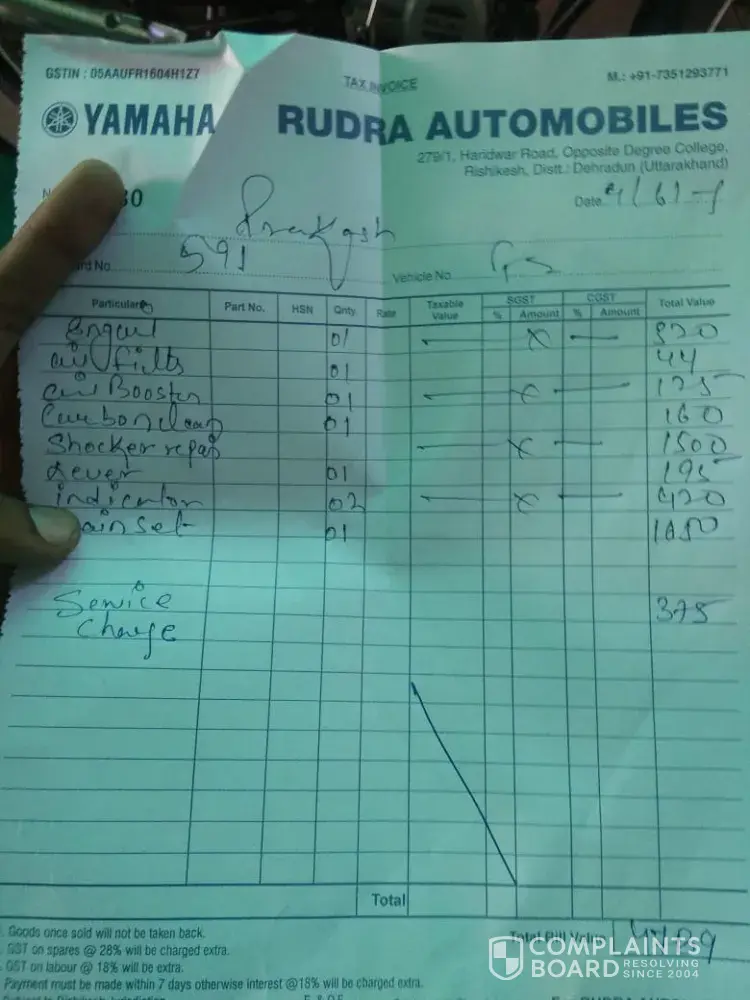 GSTIN : 05AAUFR1604H1Z7 TAX INVOICE M.: +91-7351293771
YAMAHA RUDRA AUTOMOBILES
279/1, Haridwar Road, Opposite Degree College,
Rishikesh, Distt.: Dehradun (Uttarakhand)
30 Date
Prakash
No. 591 Vehicle No.
Particulars Part No. HSN Qnty Rate Taxable Value SGST % Amount CGST % Amount Total Value
01
air filts 01 44
air Booster 01 175
Carbon clean 01 160
Shocker repair 1500
Lever 01 195
indicator 02 420
Set 01
Service 375
Charge
Total
Goods once sold will not be taken back. Total Bill Value
GST on spares @ 28% will be charged extra.
GST on labour @ 18% will be extra.
Payment must be made within 7 days otherwise interest @18% will be charged extra.
E. & O.E.
COMPLAINTS
BOARD RESOLVING SINCE 2004